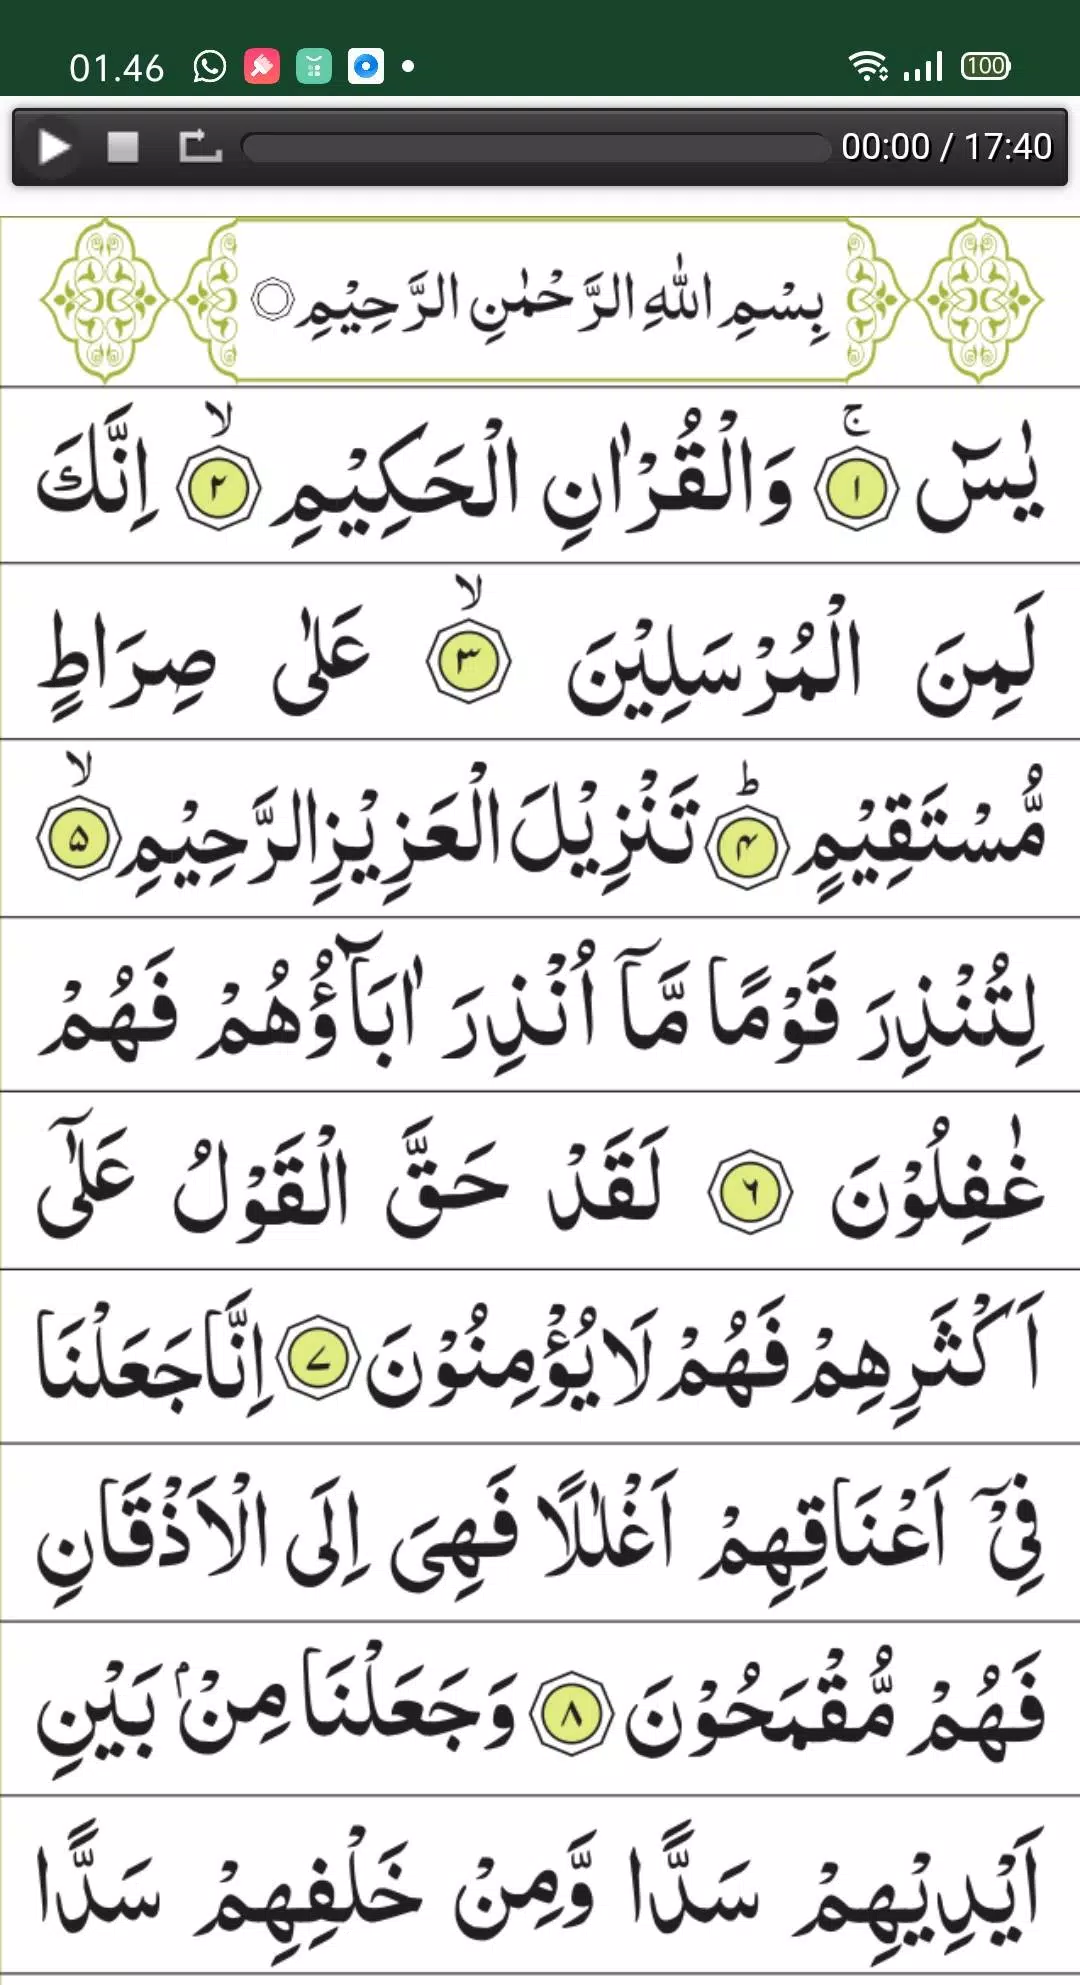 01.46
100
00:00 / 17:40
بِسْمِ اللّٰهِ الرَّحْمٰنِ الرَّحِيْمِ
يٰسٓ ۚ ﴿١﴾ وَالْقُرْاٰنِ الْحَكِيْمِ ۙ ﴿٢﴾ اِنَّكَ
لَمِنَ الْمُرْسَلِيْنَ ۙ ﴿٣﴾ عَلٰى صِرَاطٍ
مُّسْتَقِيْمٍ ؕ ﴿۴﴾ تَنْزِيْلَ الْعَزِيْزِ الرَّحِيْمِ ۙ ﴿۵﴾
لِتُنْذِرَ قَوْمًا مَّآ اُنْذِرَ اٰبَآؤُهُمْ فَهُمْ
غٰفِلُوْنَ ﴿۶﴾ لَقَدْ حَقَّ الْقَوْلُ عَلٰٓى
اَكْثَرِهِمْ فَهُمْ لَا يُؤْمِنُوْنَ ﴿۷﴾ اِنَّا جَعَلْنَا
فِيْٓ اَعْنَاقِهِمْ اَغْلٰلًا فَهِىَ اِلَى الْاَذْقَانِ
فَهُمْ مُّقْمَحُوْنَ ﴿٨﴾ وَجَعَلْنَا مِنْۢ بَيْنِ
اَيْدِيْهِمْ سَدًّا وَّمِنْ خَلْفِهِمْ سَدًّا